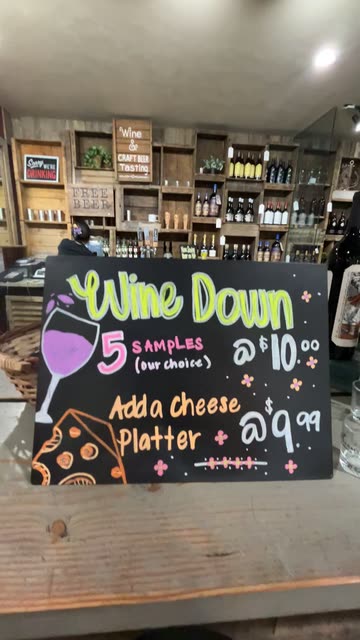 Wine
&
CRAFT BEER
Tasting
Sorry WE'RE
DRINKING
FREE
BEER
Wine Down
5 SAMPLES
(our choice)
@ $10.00
Add a Cheese
Platter
@ $9.99